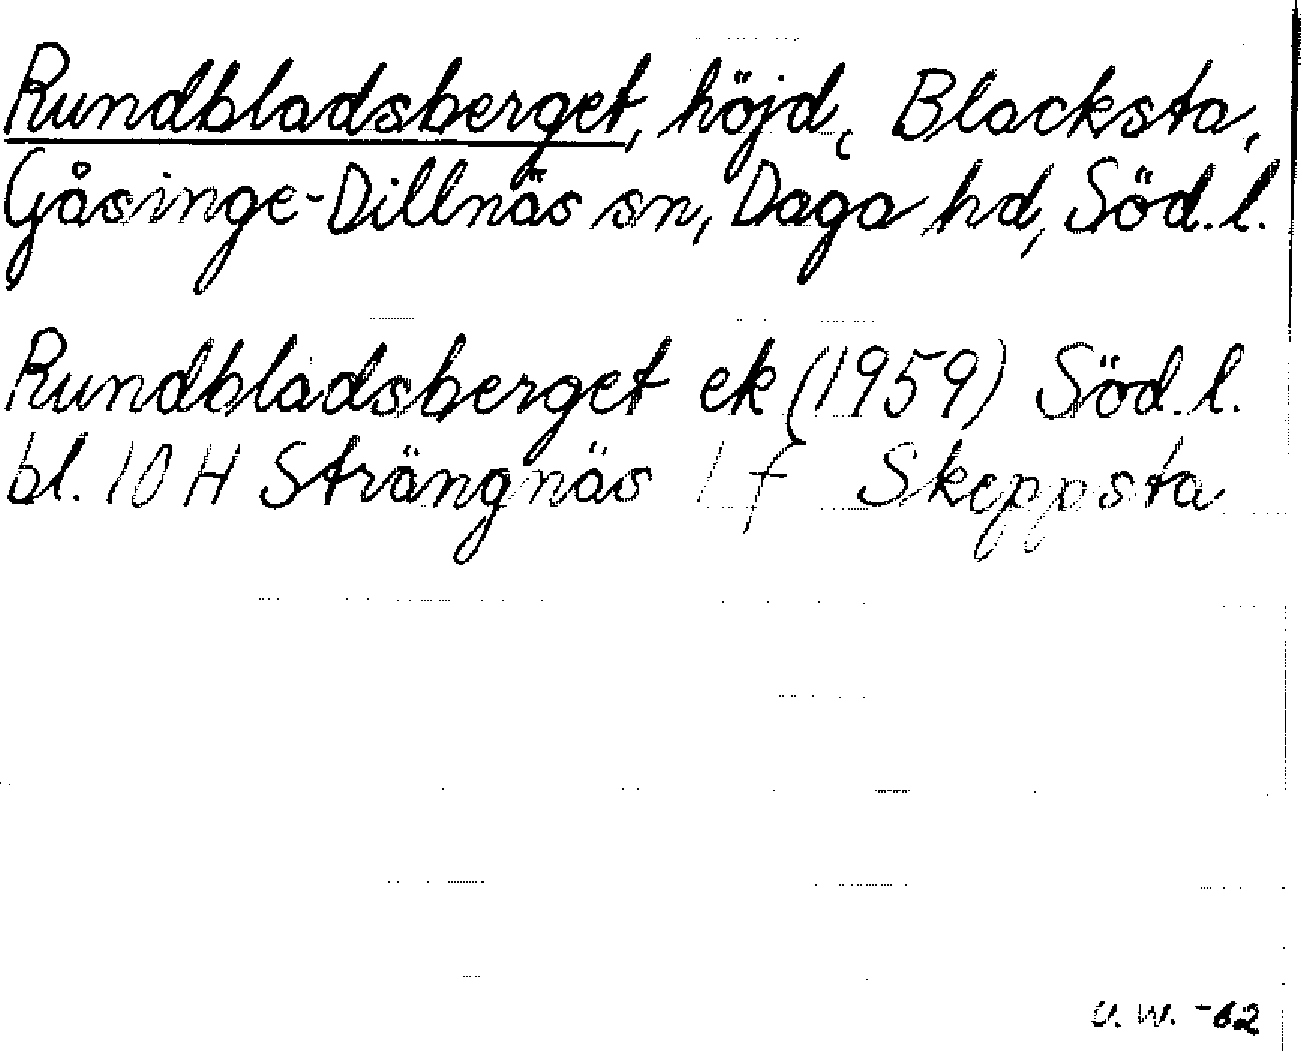 Rundbladsberget, höjd, Blacksta,
Gåsinge-Dillnäs sn, Daga hd, Söd.l.
Rundbladsberget ek (1959) Söd.l.
bl. 10 H Strängnäs 1 f Skeppsta
U.W. -62